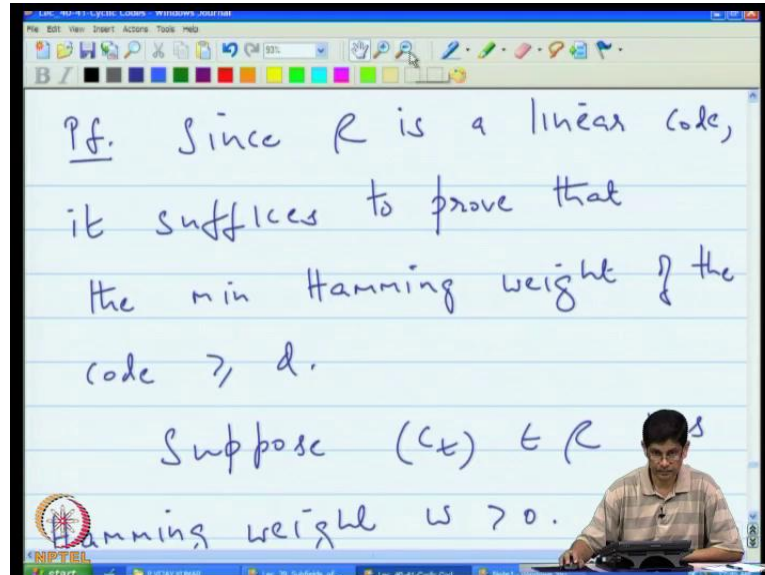 Lec_40-41-Cyclic Codes - Windows Journal
File Edit View Insert Actions Tools Help
93%
B I
Pf. Since C is a linear code,
it suffices to prove that
the min Hamming weight of the
code ≥ d.
Suppose (c_t) ∈ C
Hamming weight w > 0.
NPTEL
start